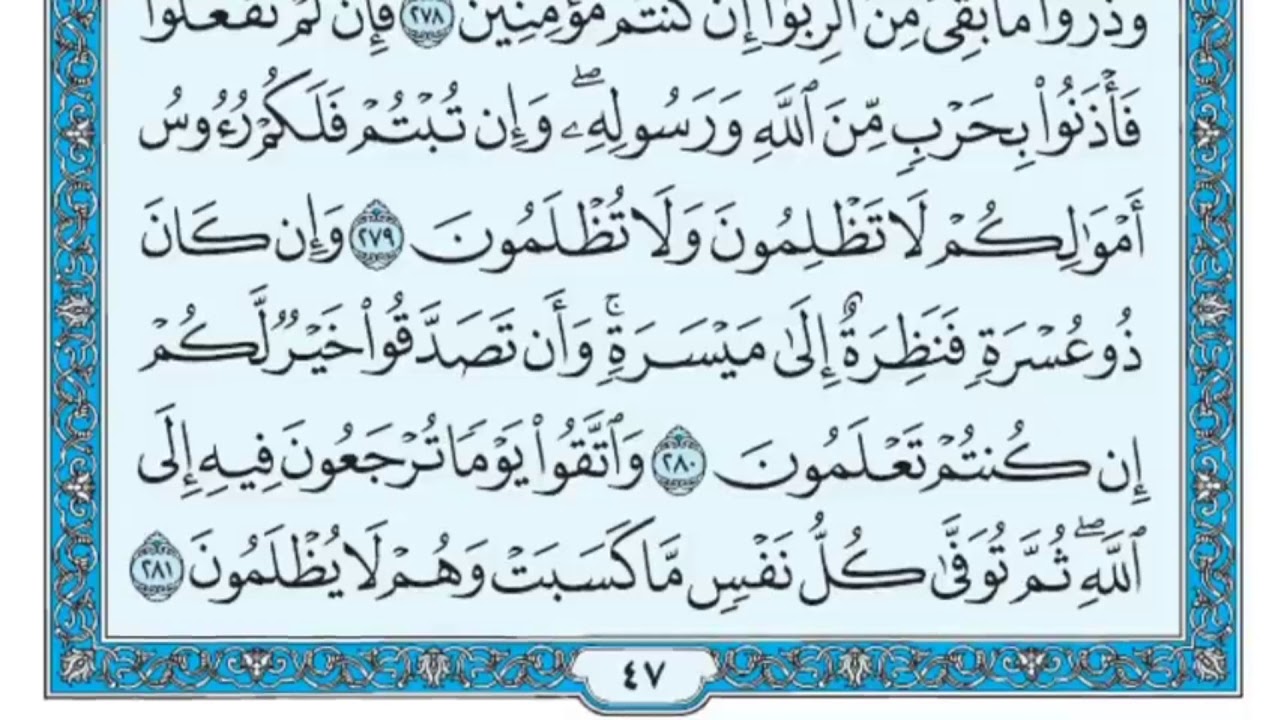 وَذَرُوا۟ مَا بَقِىَ مِنَ ٱلرِّبَوٰٓا۟ إِن كُنتُم مُّؤْمِنِينَ ٢٧٨ فَإِن لَّمْ تَفْعَلُوا۟
فَأْذَنُوا۟ بِحَرْبٍ مِّنَ ٱللَّهِ وَرَسُولِهِۦ ۖ وَإِن تُبْتُمْ فَلَكُمْ رُءُوسُ
أَمْوَٰلِكُمْ لَا تَظْلِمُونَ وَلَا تُظْلَمُونَ ٢٧٩ وَإِن كَانَ
ذُو عُسْرَةٍ فَنَظِرَةٌ إِلَىٰ مَيْسَرَةٍ ۚ وَأَن تَصَدَّقُوا۟ خَيْرٌ لَّكُمْ
إِن كُنتُمْ تَعْلَمُونَ ٢٨٠ وَٱتَّقُوا۟ يَوْمًا تُرْجَعُونَ فِيهِ إِلَى
ٱللَّهِ ۖ ثُمَّ تُوَفَّىٰ كُلُّ نَفْسٍ مَّا كَسَبَتْ وَهُمْ لَا يُظْلَمُونَ ٢٨١
٤٧